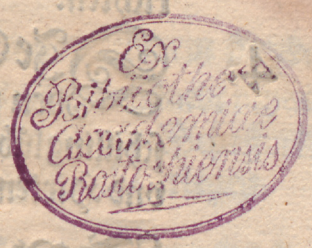 Ex
Bibliothec.
Academiae
Rostochiensis